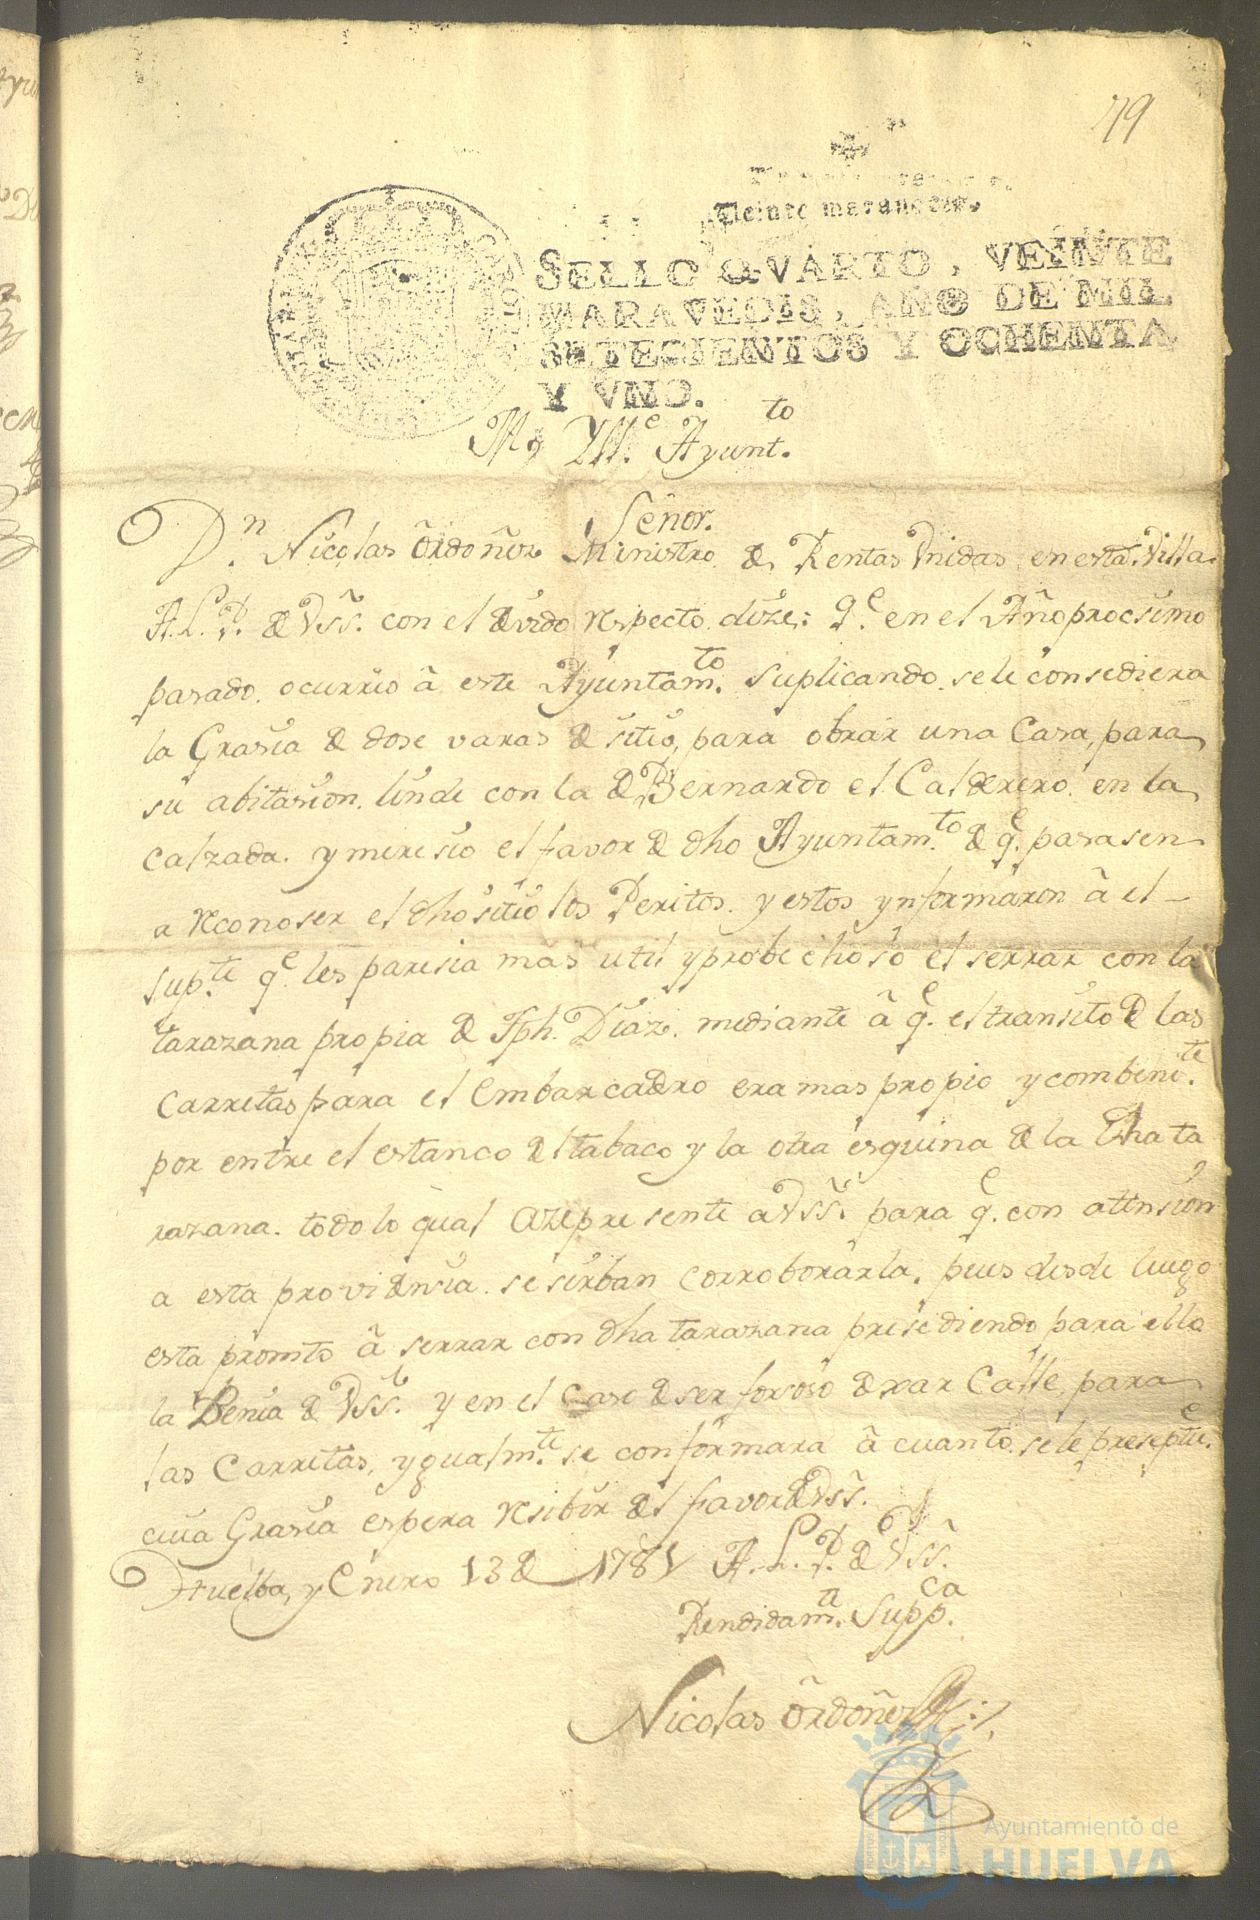 79
Veinte maravedis.
SELLO QVARTO, VEINTE
MARAVEDIS, AÑO DE MIL
SETECIENTOS Y OCHENTA
Y VNO.
M.y Yll.e Ayunt.to
Señor.
D.n Nicolas Ordoñez Ministro de Rentas Vnidas en esta Villa
A. L. P. de VSS. con el devido respecto dize: q.e en el Año procsimo
pasado ocurrio â este Ayuntam.to suplicando se le consediera
la Grasia de dose varas de sitio, para obrar una Casa, para
su abitasion linde con la de Bernardo el Calderero en la
Calzada. y meresio el favor de dho Ayuntam.to de q.e pasasen
a reconoser el dho sitio los Peritos. y estos ynformaron â el
sup.te q.e les paresia mas util y probechoso el serrar con la
tarazana propia de Jph. Diaz. mediante â q.e el transito de las
Carretas para el Embarcadero era mas propio y combeni.te
por entre el estanco del tabaco y la otra esquina de la dha ta
razana. todo lo qual aze presente a VSS. para q.e con atension
a esta providensia se sirban corroborarla. pues desde luego
esta promto â serrar con dha tarazana presediendo para ello
la Benia de VSS. y en el caso de ser forsoso dexar Calle, para
las Carretas, ygualm.te se conformara â cuanto se le preseptue.
cuia Grasia espera resibir del favor de VSS.
Huelba, y Enero 13 de 1781 A. L. P. de VSS.
Rendidam.te Supp.ca
Nicolas Ordoñez
Ayuntamiento de
HUELVA